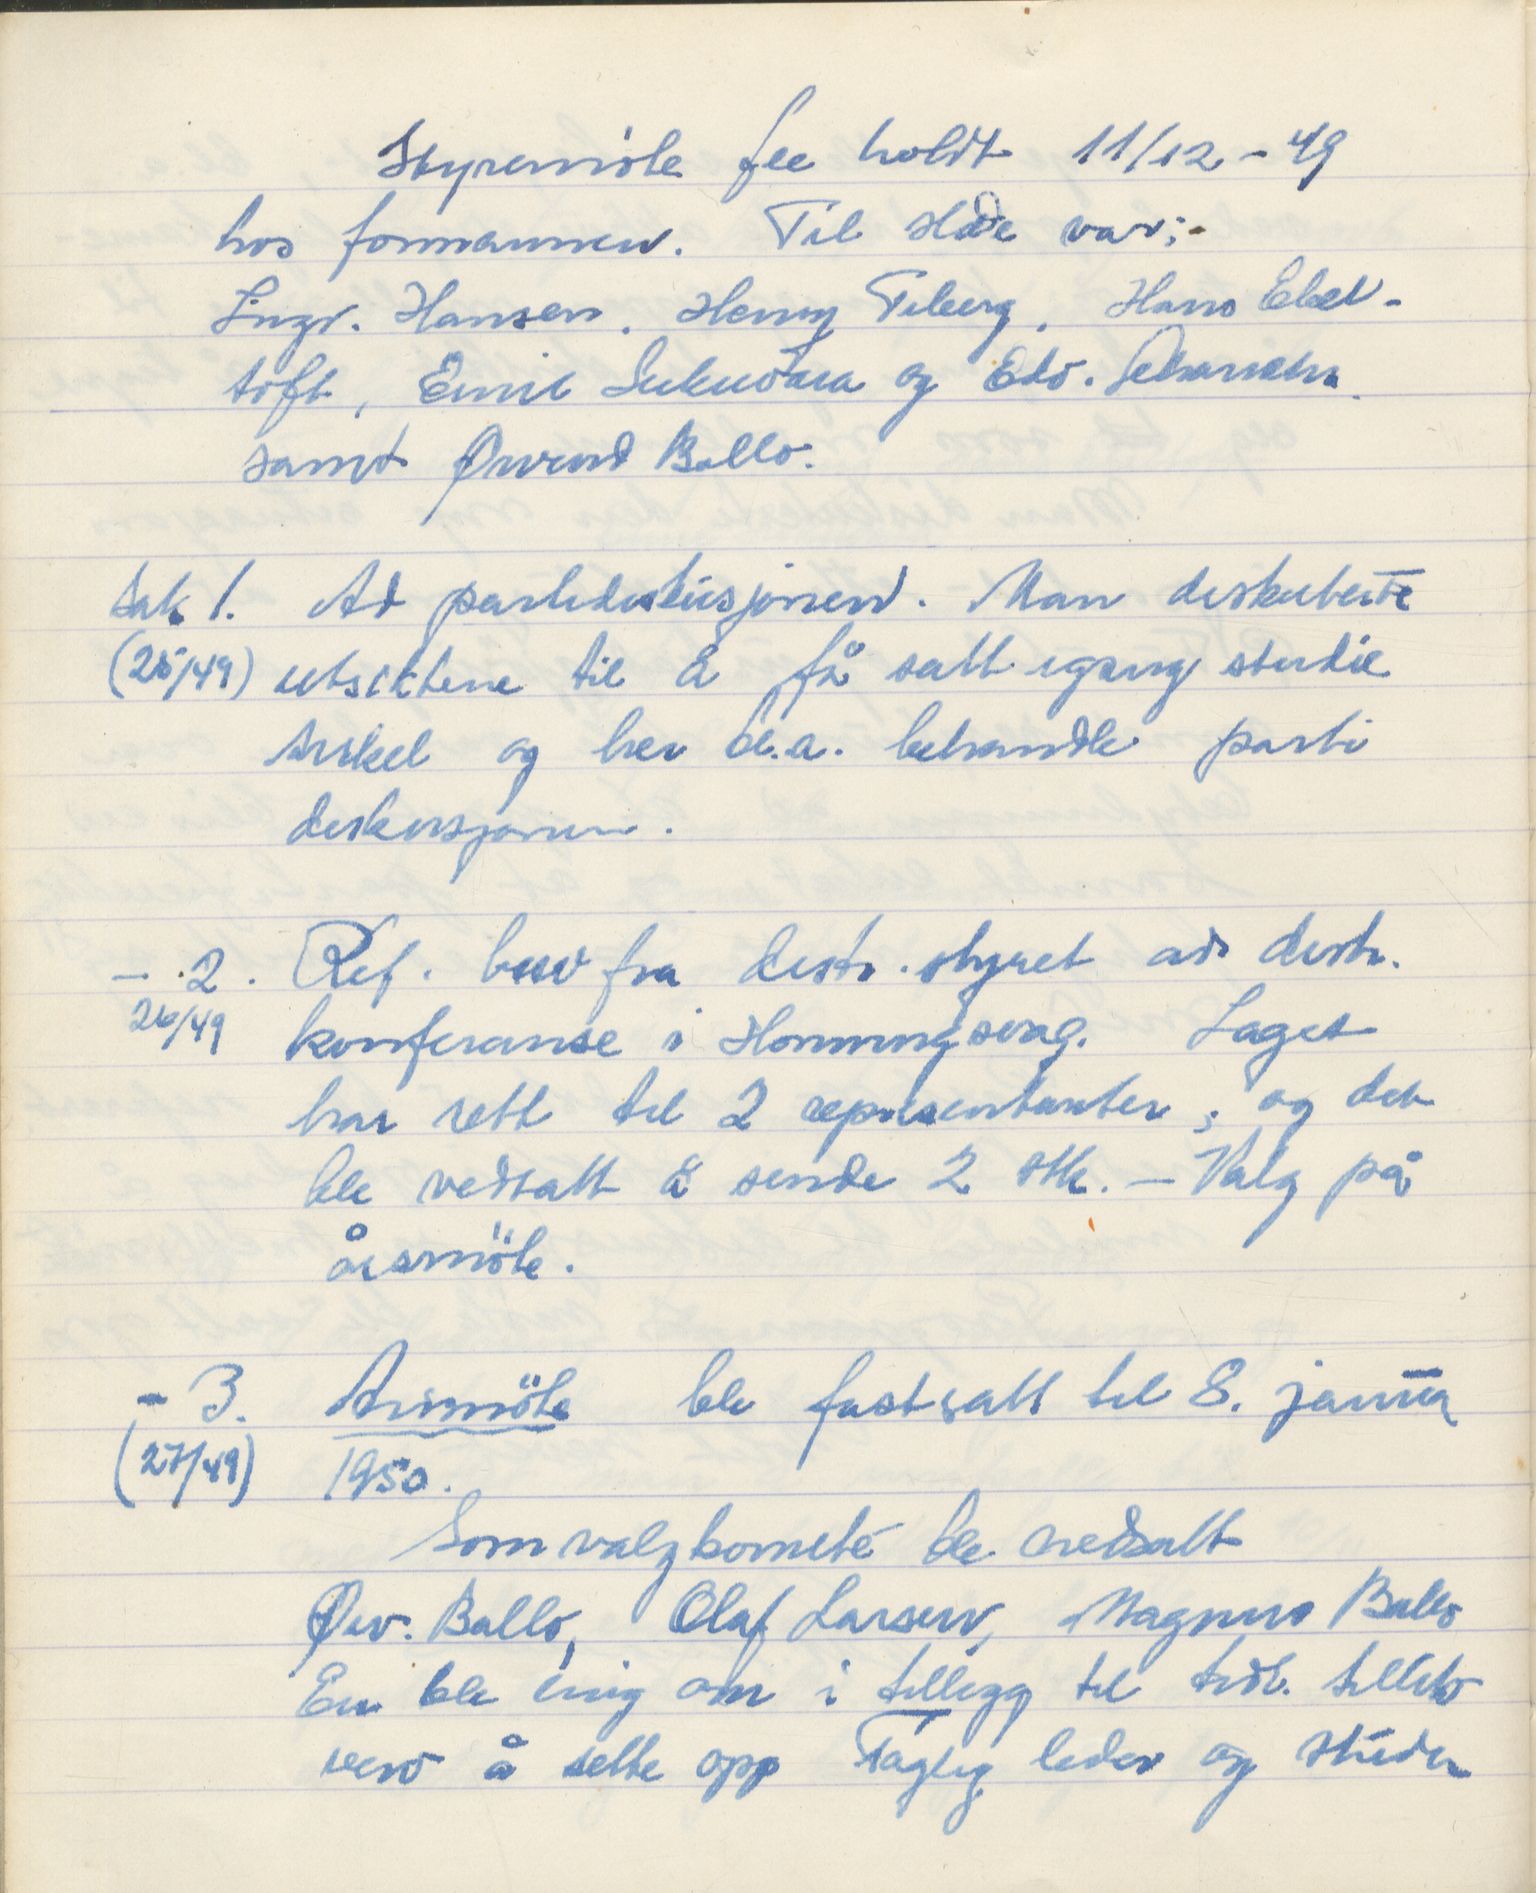 Styremöte ble holdt 11/12-49
hos formannen. Til stede var:-
Ingv. Hansen, Henry Tiberg, Hans Ebel-
toft, Emil og Edv. Johansen
samt Øivind Ballo.
Sak 1. Ad partidiskusjonen. Man diskuterte
(25/49) utsiktene til å få satt igang studie
sirkel og her bl.a. behandle parti
diskusjonen.
- 2. Ref. brev fra distr. styret ad distr.
26/49 konferanse i Honningsvåg. Laget
har rett til 2 representanter, og det
ble vedtatt å sende 2 stk. - Valg på
årsmöte.
- 3. Årsmöte ble fastsatt til 8. januar
(27/49) 1950.
Som valgkomité ble nedsatt
Øiv. Ballo, Olaf Larsen, Magnus Ballo
En ble enig om i tillegg til tidl. tillits
verv å sette opp Faglig leder og studie